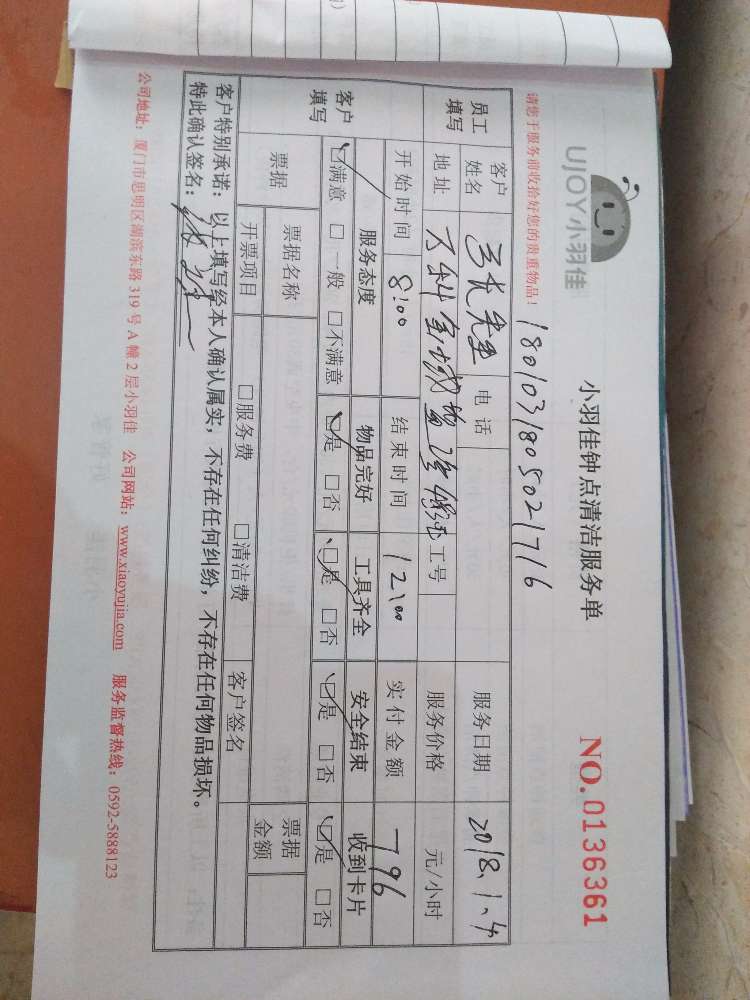 UJOY小羽佳
小羽佳钟点清洁服务单
NO.0136361
请您于服务前收拾好您的贵重物品!
1801031805021716
员工填写 客户姓名 先生 电话 服务日期 2018.1.4
地址 万科金域 工号 服务价格 元/小时
客户填写 开始时间 8:00 结束时间 12:00 实付金额 796
服务态度 物品完好 工具齐全 安全结束 收到卡片
☑满意 □一般 □不满意 ☑是 □否 ☑是 □否 ☑是 □否 ☑是 □否
票据 票据名称 票据金额
开票项目 □服务费 □清洁费 客户签名
客户特别承诺:以上填写经本人确认属实,不存在任何纠纷,不存在任何物品损坏。
特此确认签名:
公司地址:厦门市思明区湖滨东路319号A幢2层小羽佳 公司网站:www.xiaoyujia.com 服务监督热线:0592-5888123